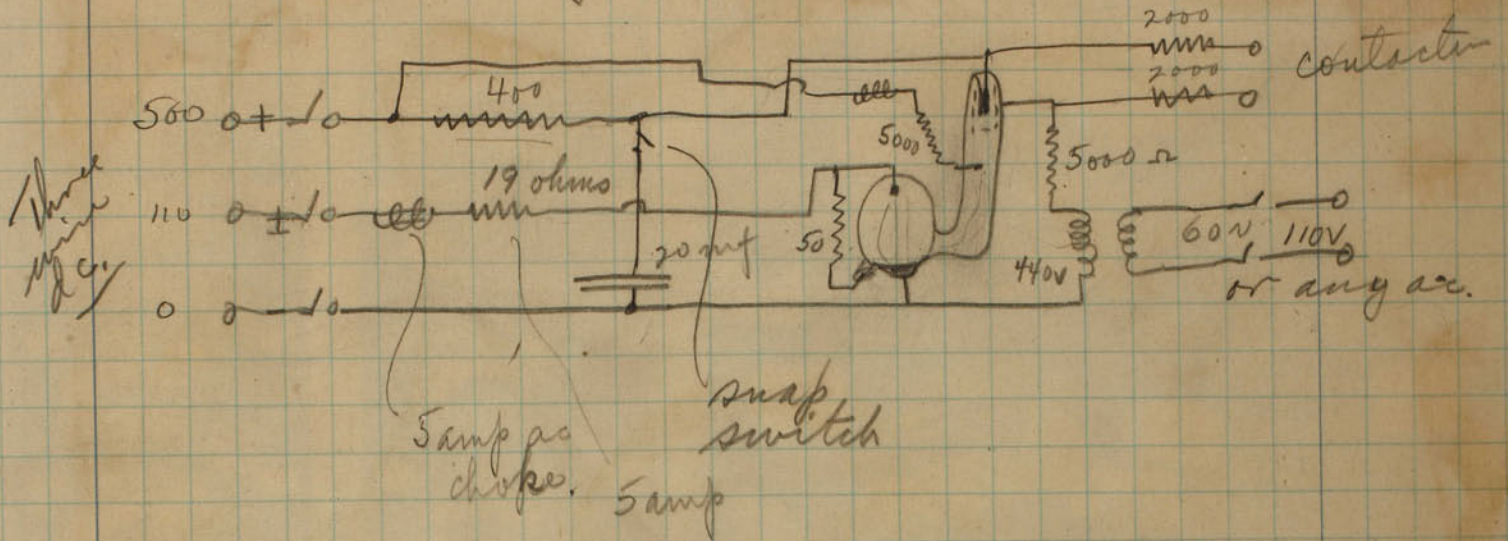 2000
contactor
2000
500
400
5000
5000 Ω
Three
wire
d.c.
110
19 ohms
50
20 mf
440V
60~ 110V
or any a.c.
0
snap
switch
5 amp ac
choke.
5 amp